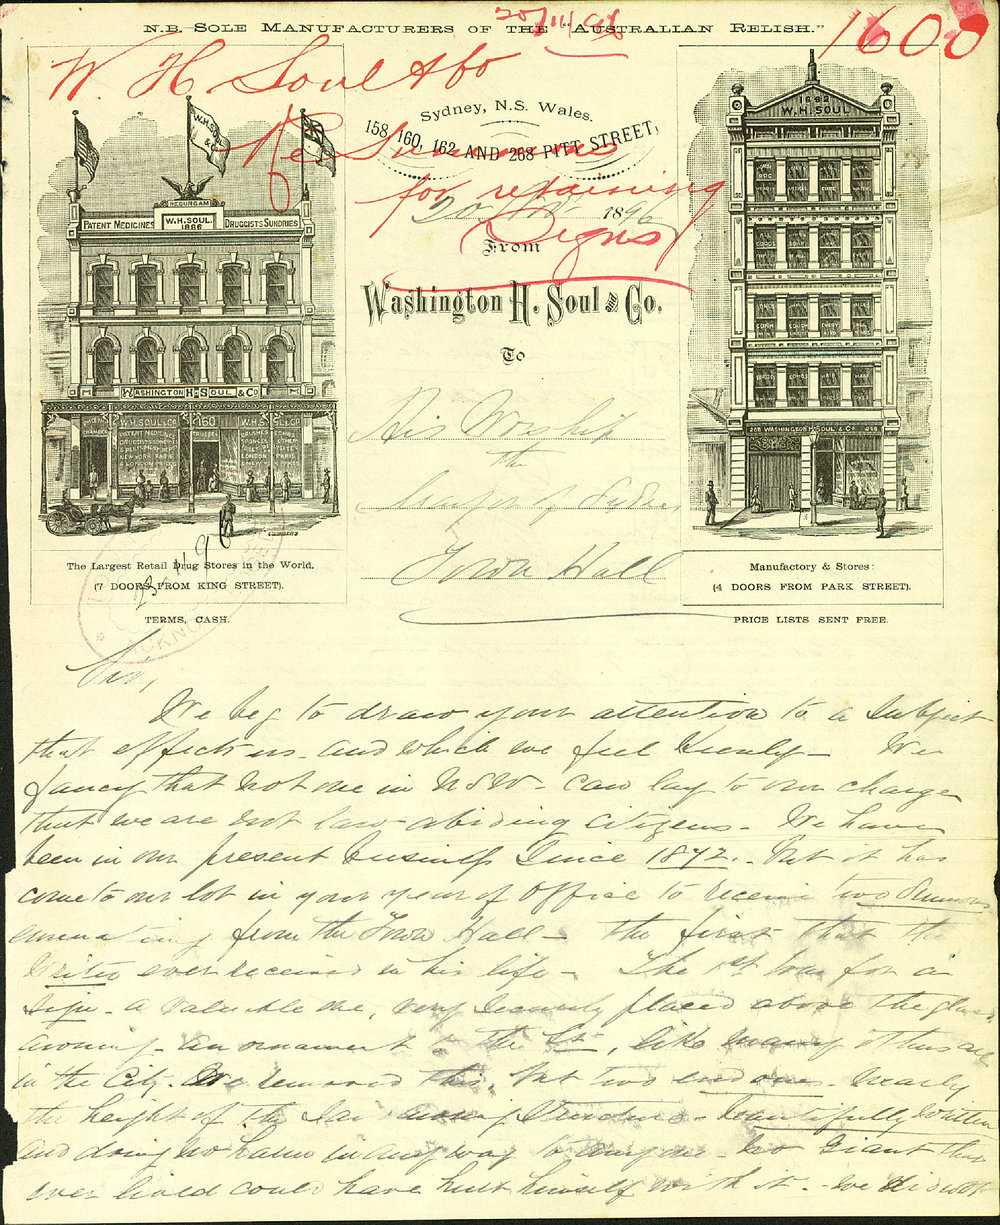 N.B. Sole Manufacturers of the "Australian Relish."
1600
W. H. Soul & Co
Re Summons
for retaining
Signs
Sydney, N.S. Wales.
158, 160, 162 AND 268 PITT STREET,
1896
From
Washington H. Soul & Co.
To
His Worship
the
Mayor of Sydney
Town Hall
W.H. SOUL & Co
RESURGAM
PATENT MEDICINES
W.H. SOUL.
1886
DRUGGISTS SUNDRIES
WASHINGTON H. SOUL & Co
W.H. SOUL & Co
160
W.H. SOUL
1892
W. H. SOUL
268 WASHINGTON H. SOUL & Co. 268
The Largest Retail Drug Stores in the World.
(7 DOORS FROM KING STREET).
TERMS, CASH.
Manufactory & Stores:
(4 DOORS FROM PARK STREET).
PRICE LISTS SENT FREE.
Sir,
We beg to draw your attention to a subject
that effects us and which we feel keenly - We
fancy that not one in NSW - can lay to our charge
that we are not law-abiding citizens - We have
been in our present business since 1872 - But it has
come to our lot in your year of office to receive two Summons
emanating from the Town Hall - the first that the
writer ever received in his life - The 1st was for a
sign - a valuable one, very securely placed above the glass
awning - an ornament to the St, like many others are
in the City - We removed this, but two end ones - nearly
the height of the awning - beautifully written
and doing no harm in any way to anyone - no Giant that
ever lived could have hurt himself with it - We did not